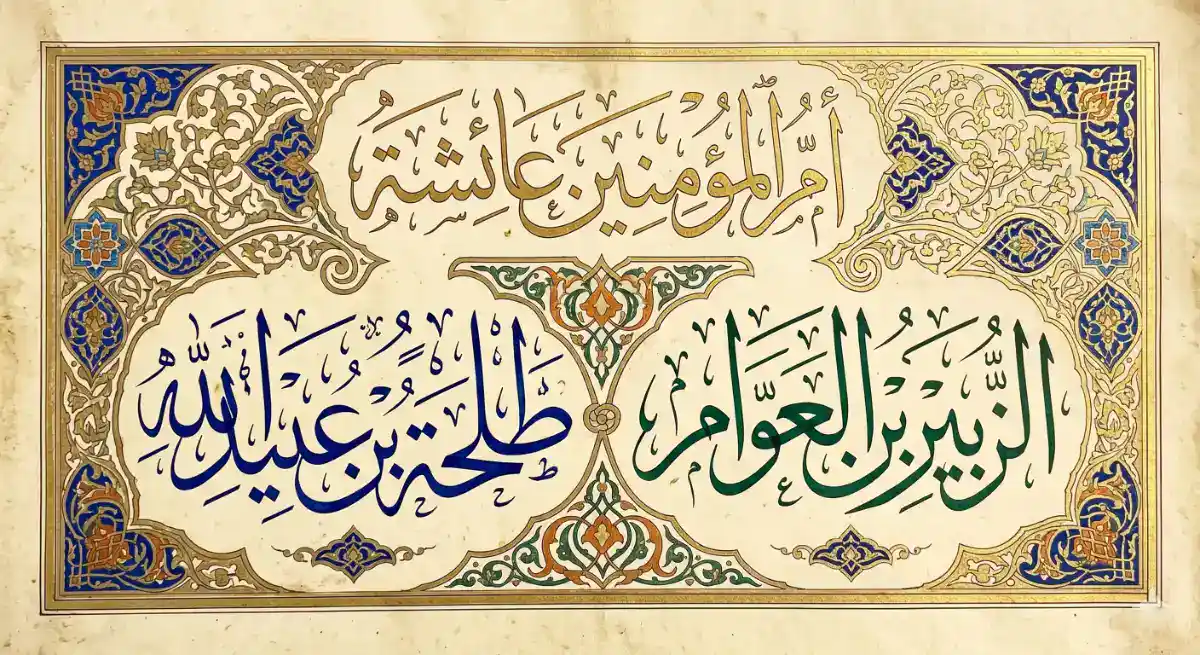 أم المؤمنين عائشة
الزبير بن العوام
طلحة بن عبيد الله